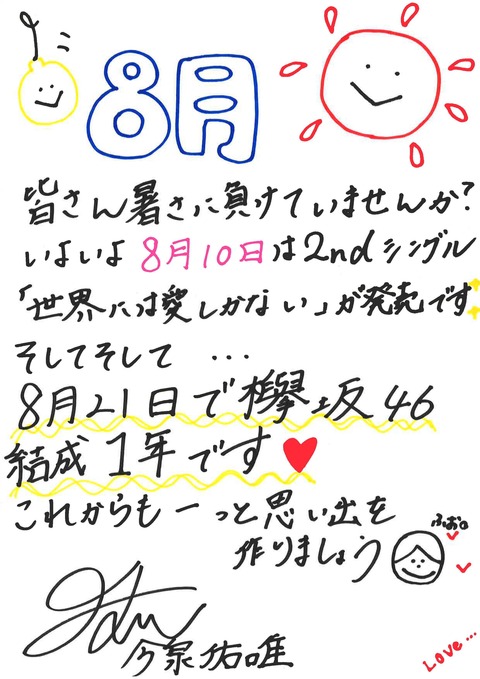 8月
皆さん暑さに負けていませんか?
いよいよ8月10日は2ndシングル
「世界には愛しかない」が発売です
そしてそして ...
8月21日で欅坂46
結成1年です♥
これからもーっと思い出を
作りましょう
ふぉ。
今泉佑唯
Love...